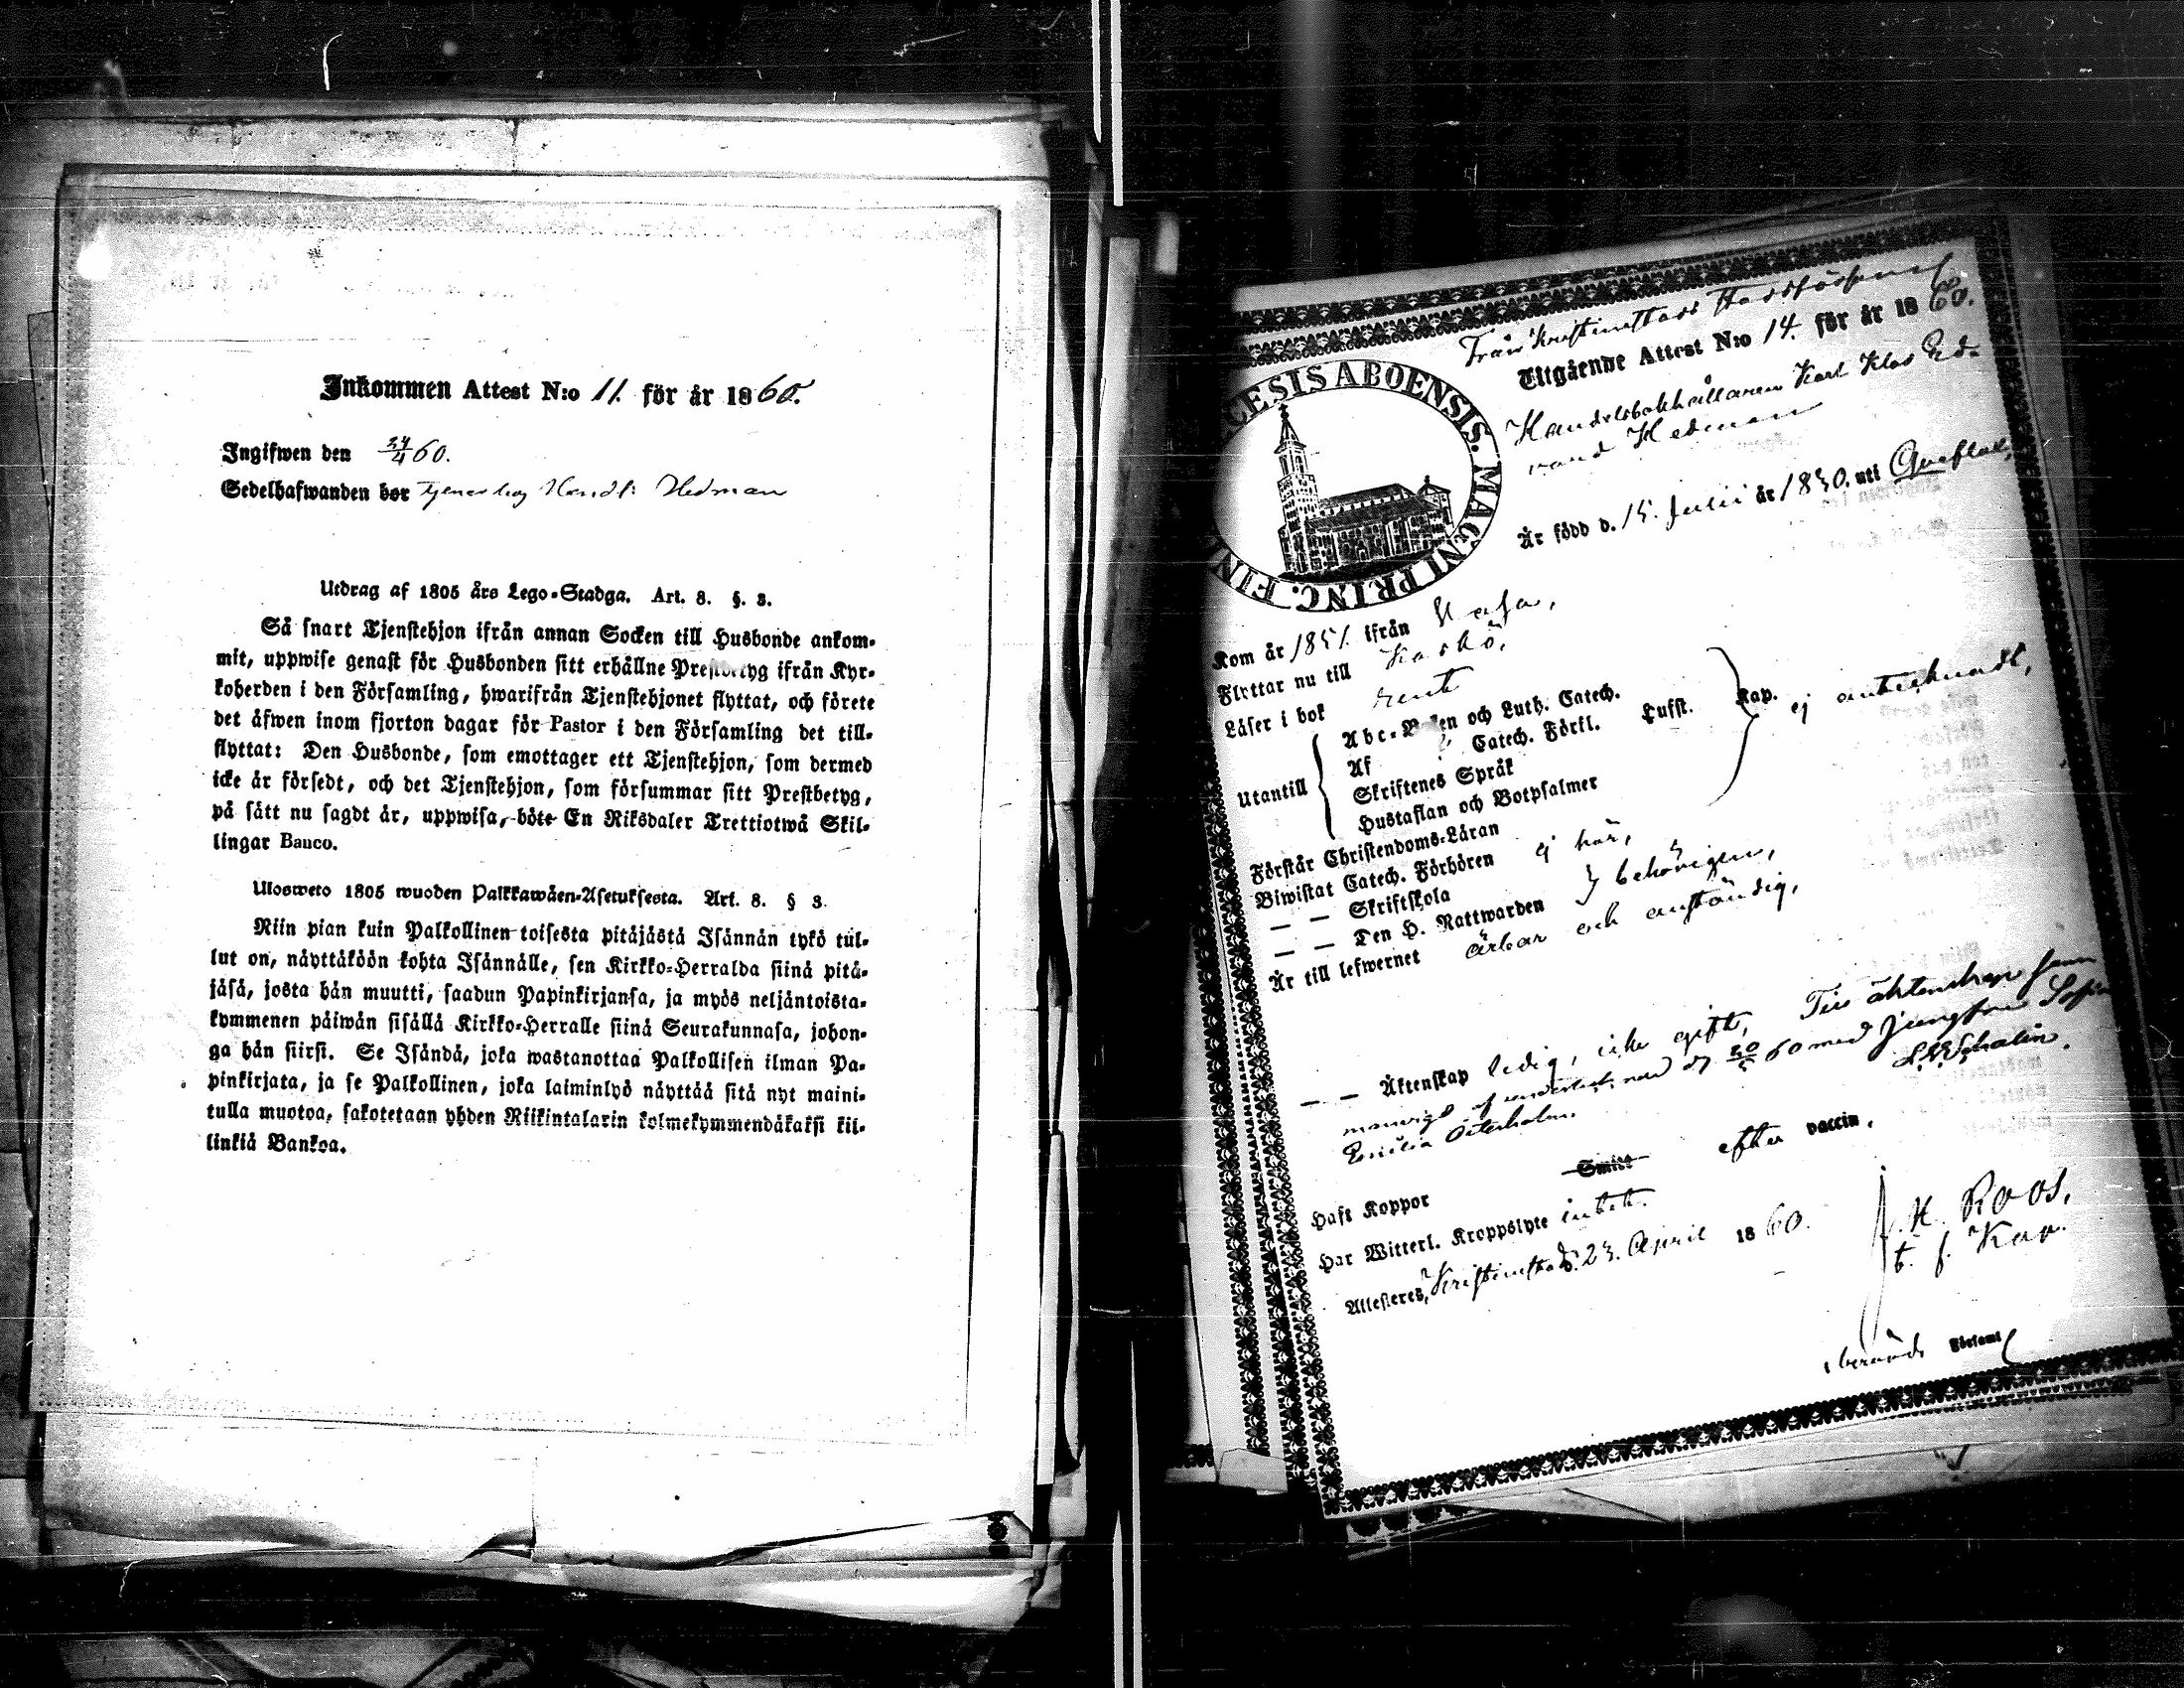 Inkommen Attest N:o 11. för år 1860.
Ingifwen den 24/4 60.
Sedelhafwanden bor tjenar hos Handl: Hedman
Utdrag af 1805 års Lego-Stadga. Art. 8. §. 3.
Så snart Tjenstehjon ifrån annan Socken till Husbonde ankom-
mit, uppwise genast för Husbonden sitt erhållne Prestbetyg ifrån Kyr-
koherden i den Församling, hwarifrån Tjenstehjonet flyttat, och förete
det äfwen inom fjorton dagar för Pastor i den Församling det till-
flyttat: Den Husbonde, som emottager ett Tjenstehjon, som dermed
icke är försedt, och det Tjenstehjon, som försummar sitt Prestbetyg,
på sätt nu sagdt är, uppwisa, böte En Riksdaler Trettiotwå Skil-
lingar Banco.
Ulosweto 1805 wuoden Palkkawäen-Asetuksesta. Art. 8. § 3.
Niin pian kuin Palkollinen toisesta pitäjästä Isännän tykö tul-
lut on, näyttäköön kohta Isännälle, sen Kirkko-Herralda siinä pitä-
jäsä, josta hän muutti, saadun Papinkirjansa, ja myös neljäntoista-
kymmenen päiwän sisällä Kirkko-Herralle siinä Seurakunnasa, johon-
ga hän siirsi. Se Isändä, joka wastanottaa Palkollisen ilman Pa-
pinkirjata, ja se Palkollinen, joka laiminlyö näyttää sitä nyt maini-
tulla muotoa, sakotetaan yhden Riikintalarin kolmekymmendäkaksi kil-
linkiä Bankoa.
Från Kristinestads Stadsförsaml
Utgående Attest N:o 14. för år 1860.
CESIS ABOENSIS. MAGNI PRINC. FIN
Handelsbokhållaren Karl Klas Ed-
vard Hedman
Är född d. 15. Julii år 1830. uti Queflax,
Kom år 1851. ifrån Wasa,
Flyttar nu till Kaskö.
Läser i bok rent
Utantill Abc-Boken och Luth. Catech.
Af Catech. Förkl. Lufst. Kap. ej antecknadt,
Skriftenes Språk
Hustaflan och Botpsalmer
Förstår Christendoms-Läran
Biwistat Catech. Förhören ej här,
— — Skriftskola
— — Den H. Nattwarden behörigen,
Är till lefwernet ärbar och anständig,
— — Äktenskap ledig, icke gift, Till äktenskap
af undertecknad d 60 med Jungfrun Sofia
Emilia Österholm. Schalin.
Haft Koppor Smitt efter vaccin,
Har Witterl. Kroppslyte intet.
Attesteres, Kristinestad d. 23. April 1860.
H. Roos,
t. f. Kap.
berörde Församl